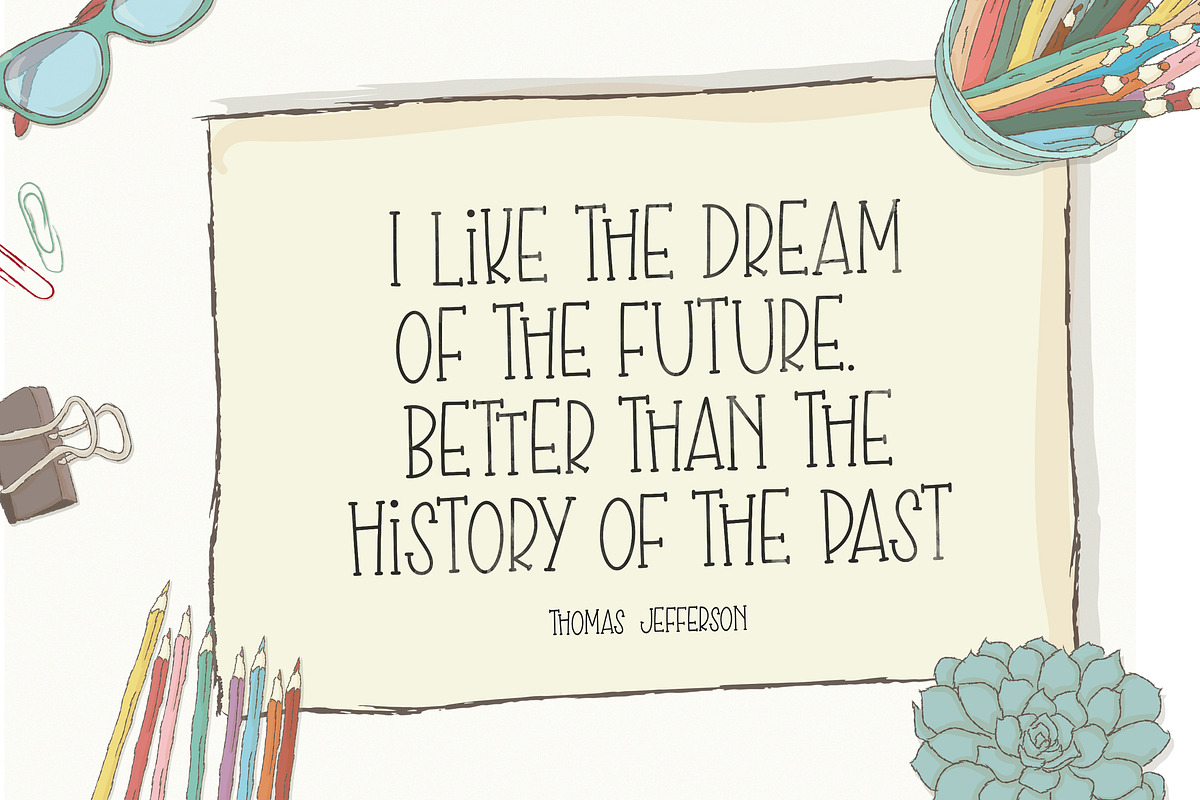 I LiKE THE DREAM
OF THE FUTURE.
BETTER THAN THE
HiSTORY OF THE PAST
THOMAS JEFFERSON